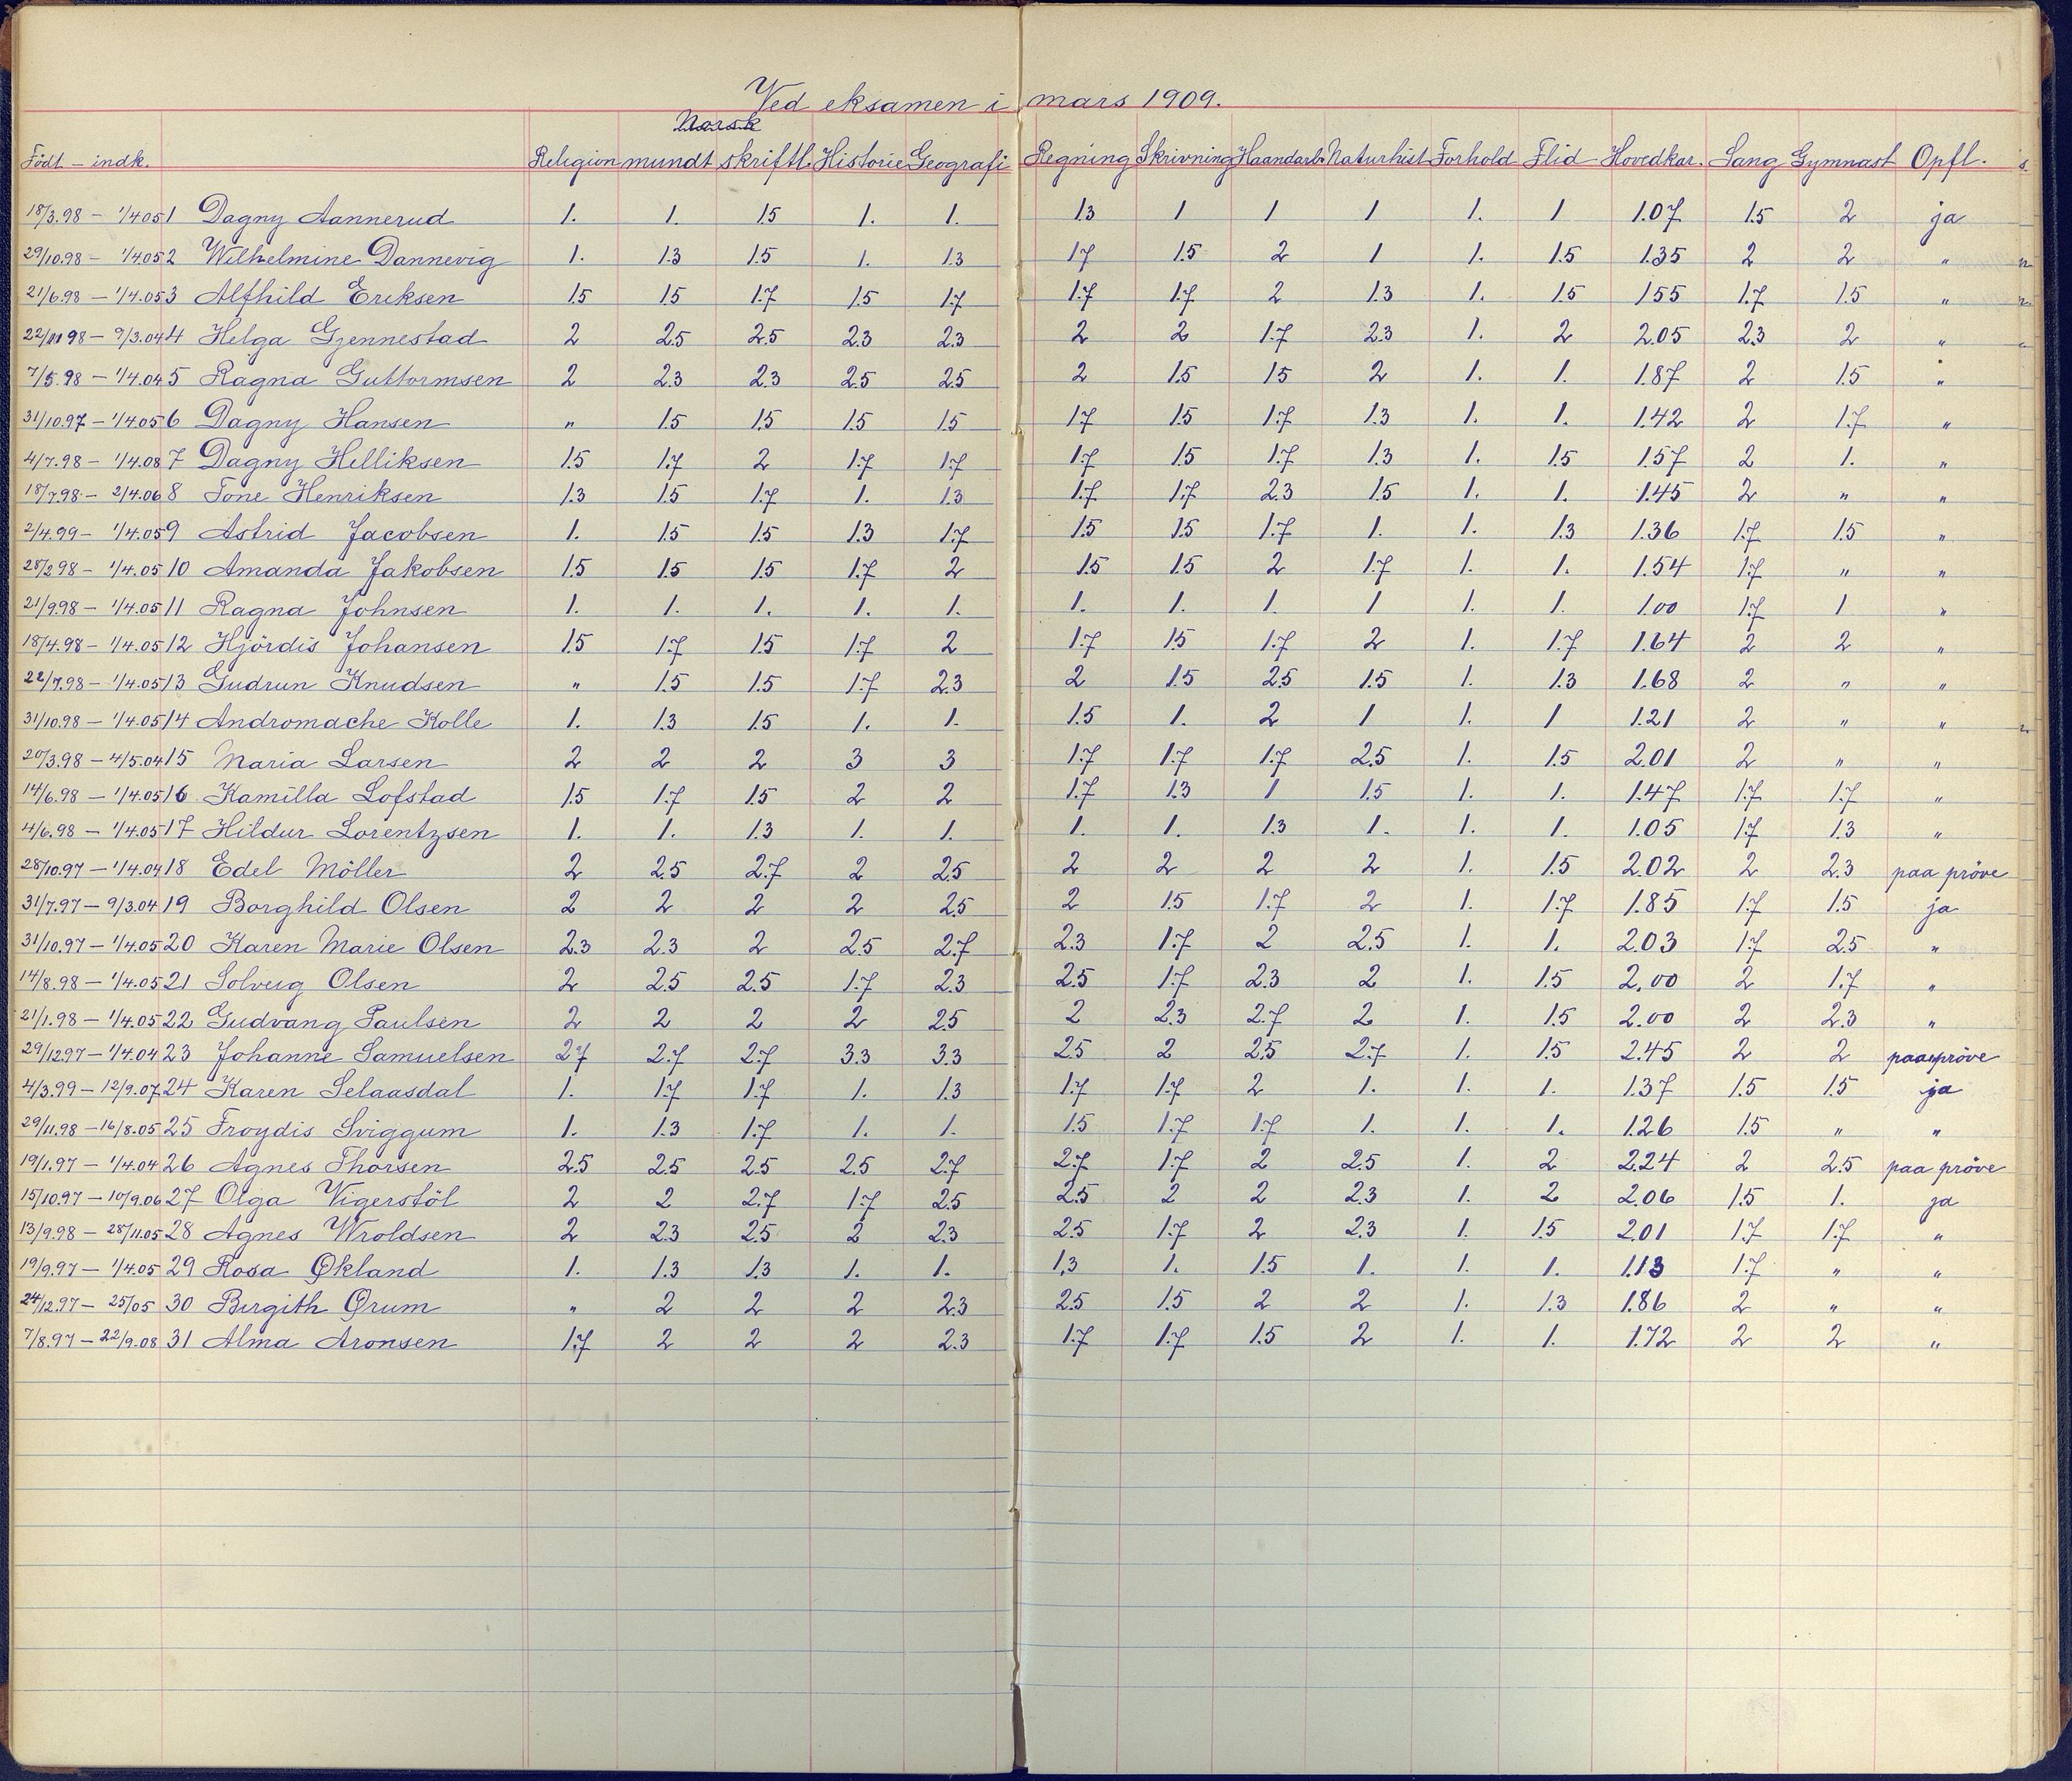 Ved eksamen i mars 1909.
Norsk
Födt - indk. Religion mundt skriftl. Historie Geografi Regning Skrivning Haandarb. Naturhist Forhold Flid Hovedkar. Sang Gymnast Opfl.
18/3.98 - 1/4 05 1 Dagny Aannerud 1. 1. 1.5 1. 1. 1.3 1 1 1 1. 1 1.07 1.5 2 ja
29/10.98 - 1/4.05 2 Wilhelmine Dannevig 1. 1.3 1.5 1. 1.3 1.7 1.5 2 1 1. 1.5 1.35 2 2 "
21/6.98 - 1/4.05 3 Alfhild Eriksen 1.5 1.5 1.7 1.5 1.7 1.7 1.7 2 1.3 1. 1.5 1.55 1.7 1.5 "
22/11 98 - 9/3.04 4 Helga Gjennestad 2 2.5 2.5 2.3 2.3 2 2 1.7 2.3 1. 2 2.05 2.3 2 "
7/5.98 - 1/4.04 5 Ragna Guttormsen 2 2.3 2.3 2.5 2.5 2 1.5 1.5 2 1. 1. 1.87 2 1.5 "
31/10.97 - 1/4.05 6 Dagny Hansen " 1.5 1.5 1.5 1.5 1.7 1.5 1.7 1.3 1. 1. 1.42 2 1.7 "
4/7.98 - 1/4.08 7 Dagny Helliksen 1.5 1.7 2 1.7 1.7 1.7 1.5 1.7 1.3 1. 1.5 1.57 2 1. "
18/7.98 - 2/4.06 8 Tone Henriksen 1.3 1.5 1.7 1. 1.3 1.7 1.7 2.3 1.5 1. 1. 1.45 2 " "
2/4.99 - 1/4.05 9 Astrid Jacobsen 1. 1.5 1.5 1.3 1.7 1.5 1.5 1.7 1. 1. 1.3 1.36 1.7 1.5 "
28/2 98 - 1/4.05 10 Amanda Jakobsen 1.5 1.5 1.5 1.7 2 1.5 1.5 2 1.7 1. 1. 1.54 1.7 " "
21/9.98 - 1/4.05 11 Ragna Johnsen 1. 1. 1. 1. 1. 1. 1. 1. 1 1. 1. 1.00 1.7 1 "
18/4.98 - 1/4.05 12 Hjördis Johansen 1.5 1.7 1.5 1.7 2 1.7 1.5 1.7 2 1. 1.7 1.64 2 2 "
22/7.98 - 1/4.05 13 Gudrun Knudsen " 1.5 1.5 1.7 2.3 2 1.5 2.5 1.5 1. 1.3 1.68 2 " "
31/10.98 - 1/4.05 14 Andromache Kolle 1. 1.3 1.5 1. 1. 1.5 1. 2 1 1. 1 1.21 2 " "
20/3.98 - 4/5.04 15 Maria Larsen 2 2 2 3 3 1.7 1.7 1.7 2.5 1. 1.5 2.01 2 " "
14/6.98 - 1/4.05 16 Kamilla Lofstad 1.5 1.7 1.5 2 2 1.7 1.3 1 1.5 1. 1. 1.47 1.7 1.7 "
4/6.98 - 1/4.05 17 Hildur Lorentzsen 1. 1. 1.3 1. 1. 1. 1. 1.3 1. 1. 1. 1.05 1.7 1.3 "
28/10.97 - 1/4.04 18 Edel Möller 2 2.5 2.7 2 2.5 2 2 2 2 1. 1.5 2.02 2 2.3 paa pröve
31/7.97 - 9/3.04 19 Borghild Olsen 2 2 2 2 2.5 2 1.5 1.7 2 1. 1.7 1.85 1.7 1.5 ja
31/10.97 - 1/4.05 20 Karen Marie Olsen 2.3 2.3 2 2.5 2.7 2.3 1.7 2 2.5 1. 1. 2.03 1.7 2.5 "
14/8.98 - 1/4.05 21 Solveig Olsen 2 2.5 2.5 1.7 2.3 2.5 1.7 2.3 2 1. 1.5 2.00 2 1.7 "
21/1.98 - 1/4.05 22 Gudvang Paulsen 2 2 2 2 2.5 2 2.3 2.7 2 1. 1.5 2.00 2 2.3 "
29/12.97 - 1/4.04 23 Johanne Samuelsen 2.7 2.7 2.7 3.3 3.3 2.5 2 2.5 2.7 1. 1.5 2.45 2 2 paa pröve
4/3.99 - 12/9.07 24 Karen Selaasdal 1. 1.7 1.7 1. 1.3 1.7 1.7 2 1. 1. 1. 1.37 1.5 1.5 ja
29/11.98 - 16/8.05 25 Froydis Sviggum 1. 1.3 1.7 1. 1. 1.5 1.7 1.7 1. 1. 1. 1.26 1.5 " "
19/1.97 - 1/4.04 26 Agnes Thorsen 2.5 2.5 2.5 2.5 2.7 2.7 1.7 2 2.5 1. 2 2.24 2 2.5 paa pröve
15/10.97 - 10/9.06 27 Olga Vigerstöl 2 2 2.7 1.7 2.5 2.5 2 2 2.3 1. 2 2.06 1.5 1. ja
13/9.98 - 28/11.05 28 Agnes Wroldsen 2 2.3 2.5 2 2.3 2.5 1.7 2 2.3 1. 1.5 2.01 1.7 1.7 "
19/9.97 - 1/4.05 29 Rosa Økland 1. 1.3 1.3 1. 1. 1.3 1. 1.5 1. 1. 1. 1.13 1.7 " "
24/12.97 - 25/05 30 Birgith Ørum " 2 2 2 2.3 2.5 1.5 2 2 1. 1.3 1.86 2 " "
7/8.97 - 22/9.08 31 Alma Aronsen 1.7 2 2 2 2.3 1.7 1.7 1.5 2 1. 1. 1.72 2 2 "